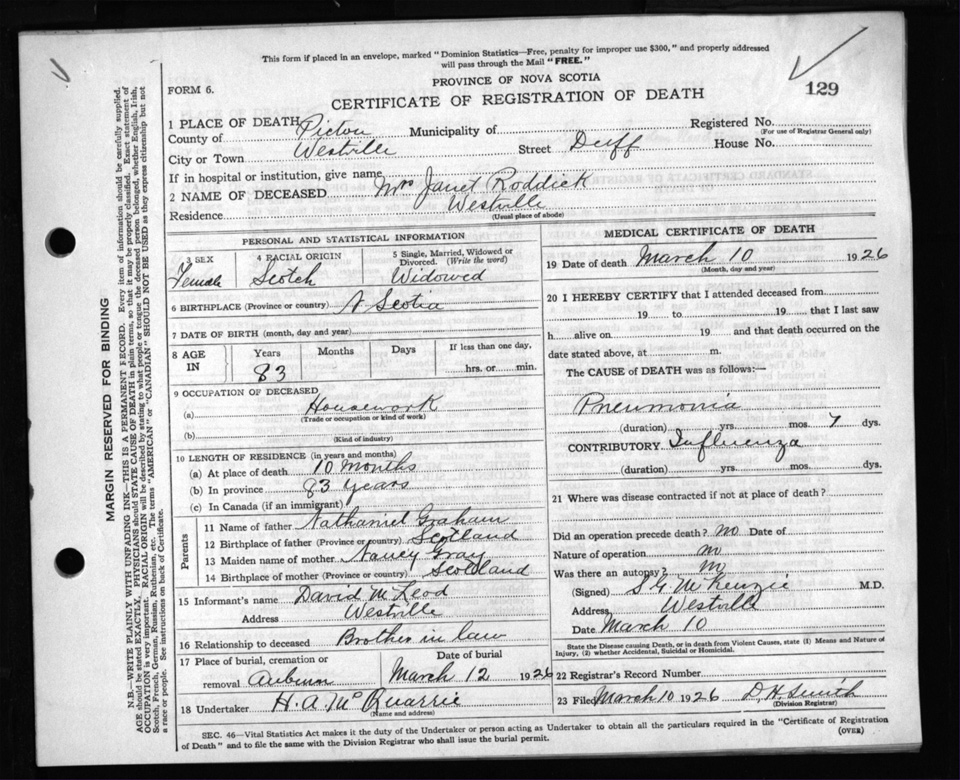 This form if placed in an envelope, marked "Dominion Statistics—Free, penalty for improper use $300," and properly addressed
will pass through the Mail "FREE."
129
PROVINCE OF NOVA SCOTIA
FORM 6.
CERTIFICATE OF REGISTRATION OF DEATH
1 PLACE OF DEATH
County of Pictou Municipality of Registered No.
(For use of Registrar General only)
City or Town Westville Street Duff House No.
If in hospital or institution, give name
2 NAME OF DECEASED Mrs Janet Roddick
Residence Westville
(Usual place of abode)
PERSONAL AND STATISTICAL INFORMATION
3 SEX 4 RACIAL ORIGIN 5 Single, Married, Widowed or Divorced. (Write the word)
Female Scotch Widowed
6 BIRTHPLACE (Province or country) N Scotia
7 DATE OF BIRTH (month, day and year)
8 AGE IN Years Months Days If less than one day,
83 hrs. or min.
9 OCCUPATION OF DECEASED
(a) Housework
(Trade or occupation or kind of work)
(b)
(Kind of industry)
10 LENGTH OF RESIDENCE (in years and months)
(a) At place of death 10 months
(b) In province 83 years
(c) In Canada (if an immigrant)
Parents
11 Name of father Nathaniel Graham
12 Birthplace of father (Province or country) Scotland
13 Maiden name of mother Nancy Gray
14 Birthplace of mother (Province or country) Scotland
15 Informant's name David McLeod
Address Westville
16 Relationship to deceased Brother in law
17 Place of burial, cremation or Date of burial
removal Auburn March 12 1926
18 Undertaker H. A. McQuarrie
(Name and address)
MEDICAL CERTIFICATE OF DEATH
19 Date of death March 10 1926
(Month, day and year)
20 I HEREBY CERTIFY that I attended deceased from
19 to 19 that I last saw
h alive on 19 and that death occurred on the
date stated above, at m.
The CAUSE of DEATH was as follows:—
Pneumonia
(duration) yrs. mos. 7 dys.
CONTRIBUTORY Influenza
(duration) yrs. mos. dys.
21 Where was disease contracted if not at place of death?
Did an operation precede death? no Date of
Nature of operation no
Was there an autopsy? no
(Signed) McKenzie M.D.
Address Westville
Date March 10
State the Disease causing Death, or in death from Violent Causes, state (1) Means and Nature of
Injury, (2) whether Accidental, Suicidal or Homicidal.
22 Registrar's Record Number
23 Filed March 10 1926 D. H. Smith
(Division Registrar)
SEC. 46—Vital Statistics Act makes it the duty of the Undertaker or person acting as Undertaker to obtain all the particulars required in the "Certificate of Registration
of Death" and to file the same with the Division Registrar who shall issue the burial permit.
(OVER)
MARGIN RESERVED FOR BINDING
N.B.—WRITE PLAINLY WITH UNFADING INK—THIS IS A PERMANENT RECORD. Every item of information should be carefully supplied.
AGE should be stated EXACTLY. PHYSICIANS should STATE CAUSE OF DEATH in plain terms, so that it may be properly classified. Exact statement of
OCCUPATION is very important. RACIAL ORIGIN will be described by stating to what people or tongue the deceased person belonged, whether English, Irish,
Scotch, French, German, Russian, Ruthenian, etc. The terms "AMERICAN" or "CANADIAN" SHOULD NOT BE USED as they express citizenship but not
a race or people. See instructions on back of Certificate.